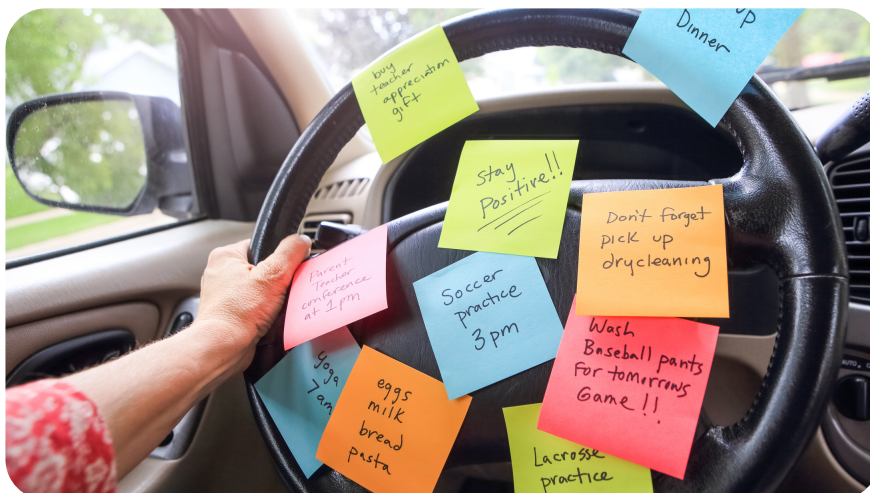 up
Dinner
buy
teacher
appreciation
gift
Stay
Positive!!
Don't forget
pick up
drycleaning
Parent
Teacher
conference
at 1pm
Soccer
practice
3pm
Wash
Baseball pants
For tomorrows
Game!!
yoga
7am
eggs
milk
bread
pasta
Lacrosse
practice
AUTO